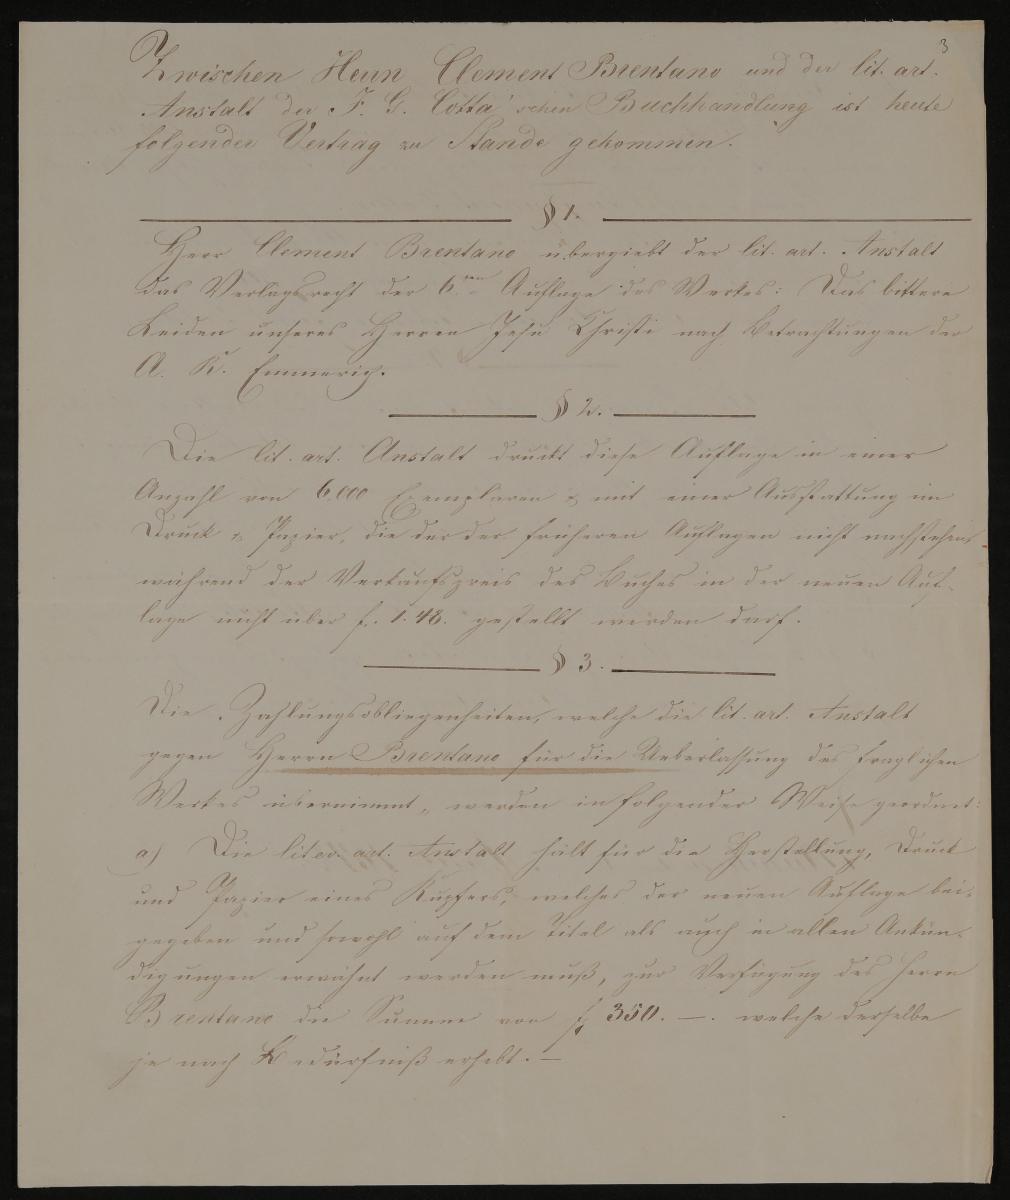 3
Zwischen Herrn Clement Brentano und der lit. art.
Anstalt der J. G. Cotta'schen Buchhandlung ist heute
folgender Vertrag zu Stande gekommen.
§ 1.
Herr Clement Brentano übergiebt der lit. art. Anstalt
das Verlagsrecht der 6ten Auflage des Werkes: Das bittere
Leiden unseres Herren Jesu Christi nach Betrachtungen der
A. K. Emmerich.
§ 2.
Die lit. art. Anstalt druckt diese Auflage in einer
Anzahl von 6,000 Exemplaren & mit einer Ausstattung im
Druck & Papier, die der der früheren Auflagen nicht nachstehen,
während der Verkaufspreis des Buches in der neuen Auf-
lage nicht über f. 1. 48. gestellt werden darf.
§ 3.
Die Zahlungsobliegenheiten, welche die lit. art. Anstalt
gegen Herrn Brentano für die Ueberlassung des fraglichen
Werkes übernimmt, werden in folgender Weise geordnet:
a) Die liter. art. Anstalt hält für die Herstellung, Druck
und Papier eines Kupfers, welches der neuen Auflage bei-
gegeben und sowohl auf dem Titel als auch in allen Ankün-
digungen erwähnt werden muß, zur Verfügung des Herrn
Brentano die Summe von f 350. —. welche derselbe
je nach Bedürfniß erhebt. —